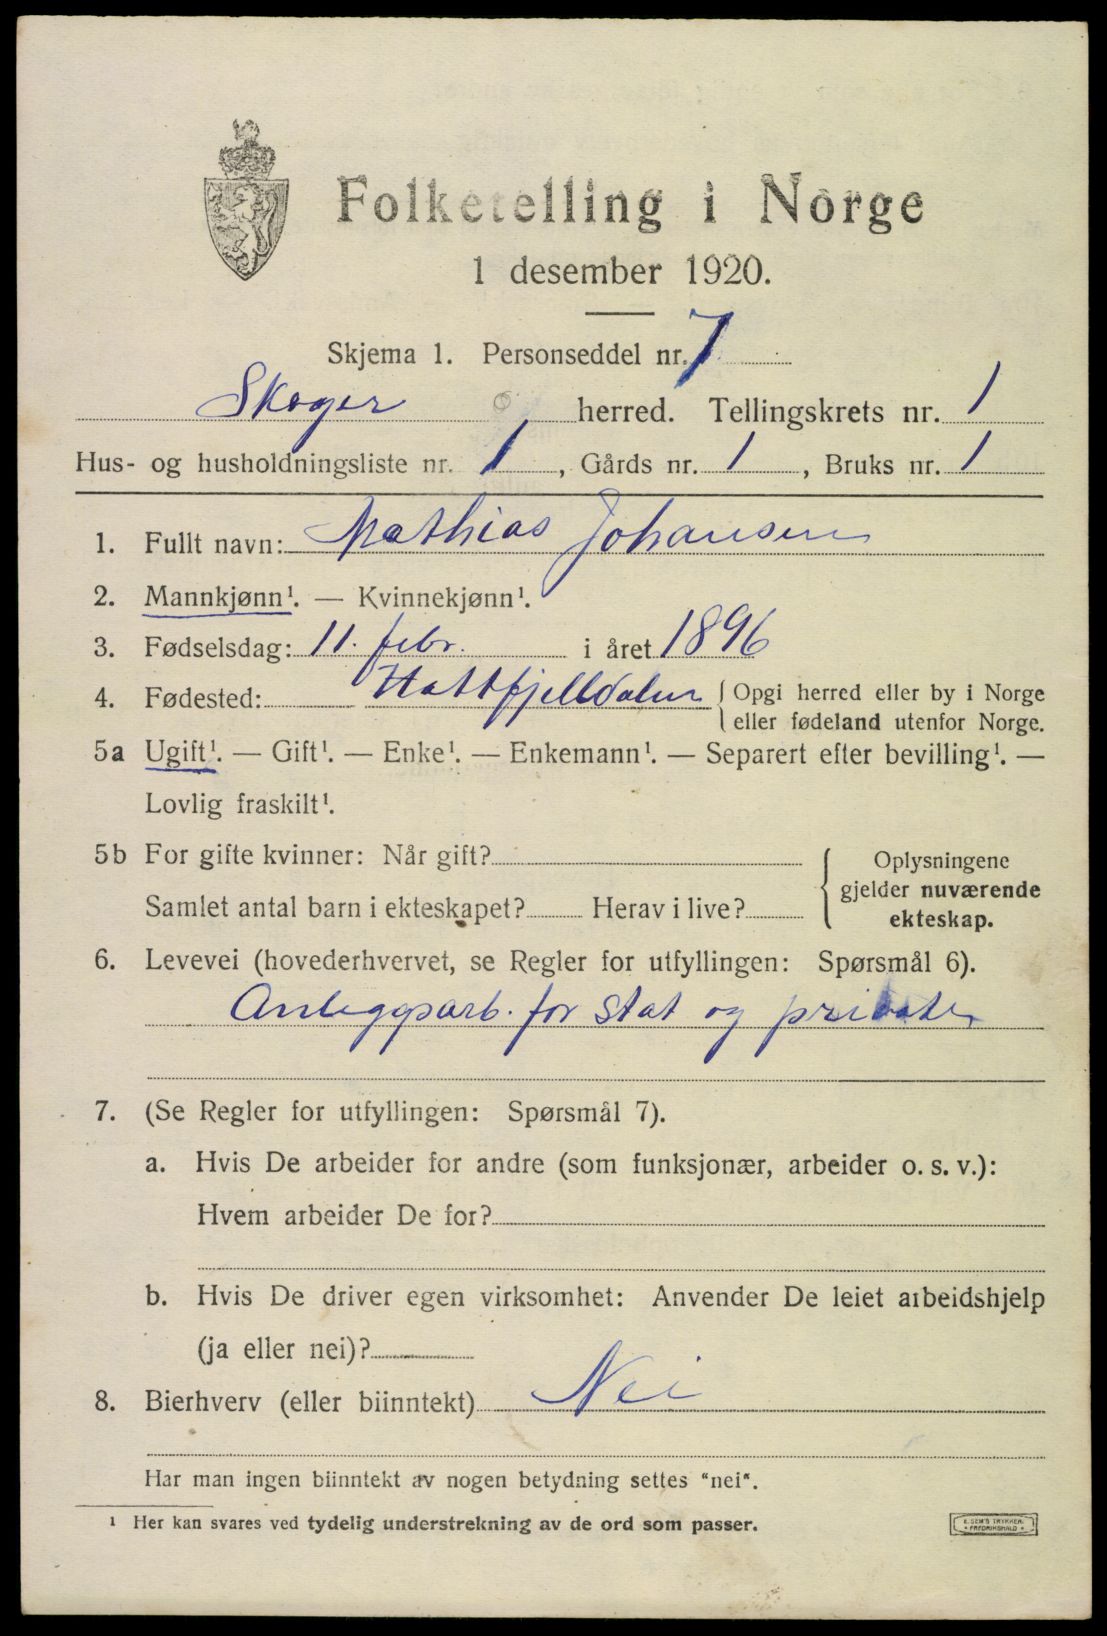 Folketelling i Norge
1 desember 1920.
Skjema 1. Personseddel nr. 7
Skoger herred. Tellingskrets nr. 1
Hus- og husholdningsliste nr. 1, Gårds nr. 1, Bruks nr. 1
1. Fullt navn: Mathias Johansen
2. Mannkjønn¹. — Kvinnekjønn¹.
3. Fødselsdag: 11. febr. i året 1896
4. Fødested: Hattfjelldalen { Opgi herred eller by i Norge
eller fødeland utenfor Norge.
5a Ugift¹. — Gift¹. — Enke¹. — Enkemann¹. — Separert efter bevilling¹. —
Lovlig fraskilt¹.
5b For gifte kvinner: Når gift?
Samlet antal barn i ekteskapet? Herav i live?
{ Oplysningene
gjelder nuværende
ekteskap.
6. Levevei (hovederhvervet, se Regler for utfyllingen: Spørsmål 6).
Anleggsarb. for stat og private
7. (Se Regler for utfyllingen: Spørsmål 7).
a. Hvis De arbeider for andre (som funksjonær, arbeider o. s. v.):
Hvem arbeider De for?
b. Hvis De driver egen virksomhet: Anvender De leiet arbeidshjelp
(ja eller nei)?
8. Bierhverv (eller biinntekt) Nei
Har man ingen biinntekt av nogen betydning settes "nei".
¹ Her kan svares ved tydelig understrekning av de ord som passer.
E. SEM'S TRYKKERI
• FREDRIKSHALD •